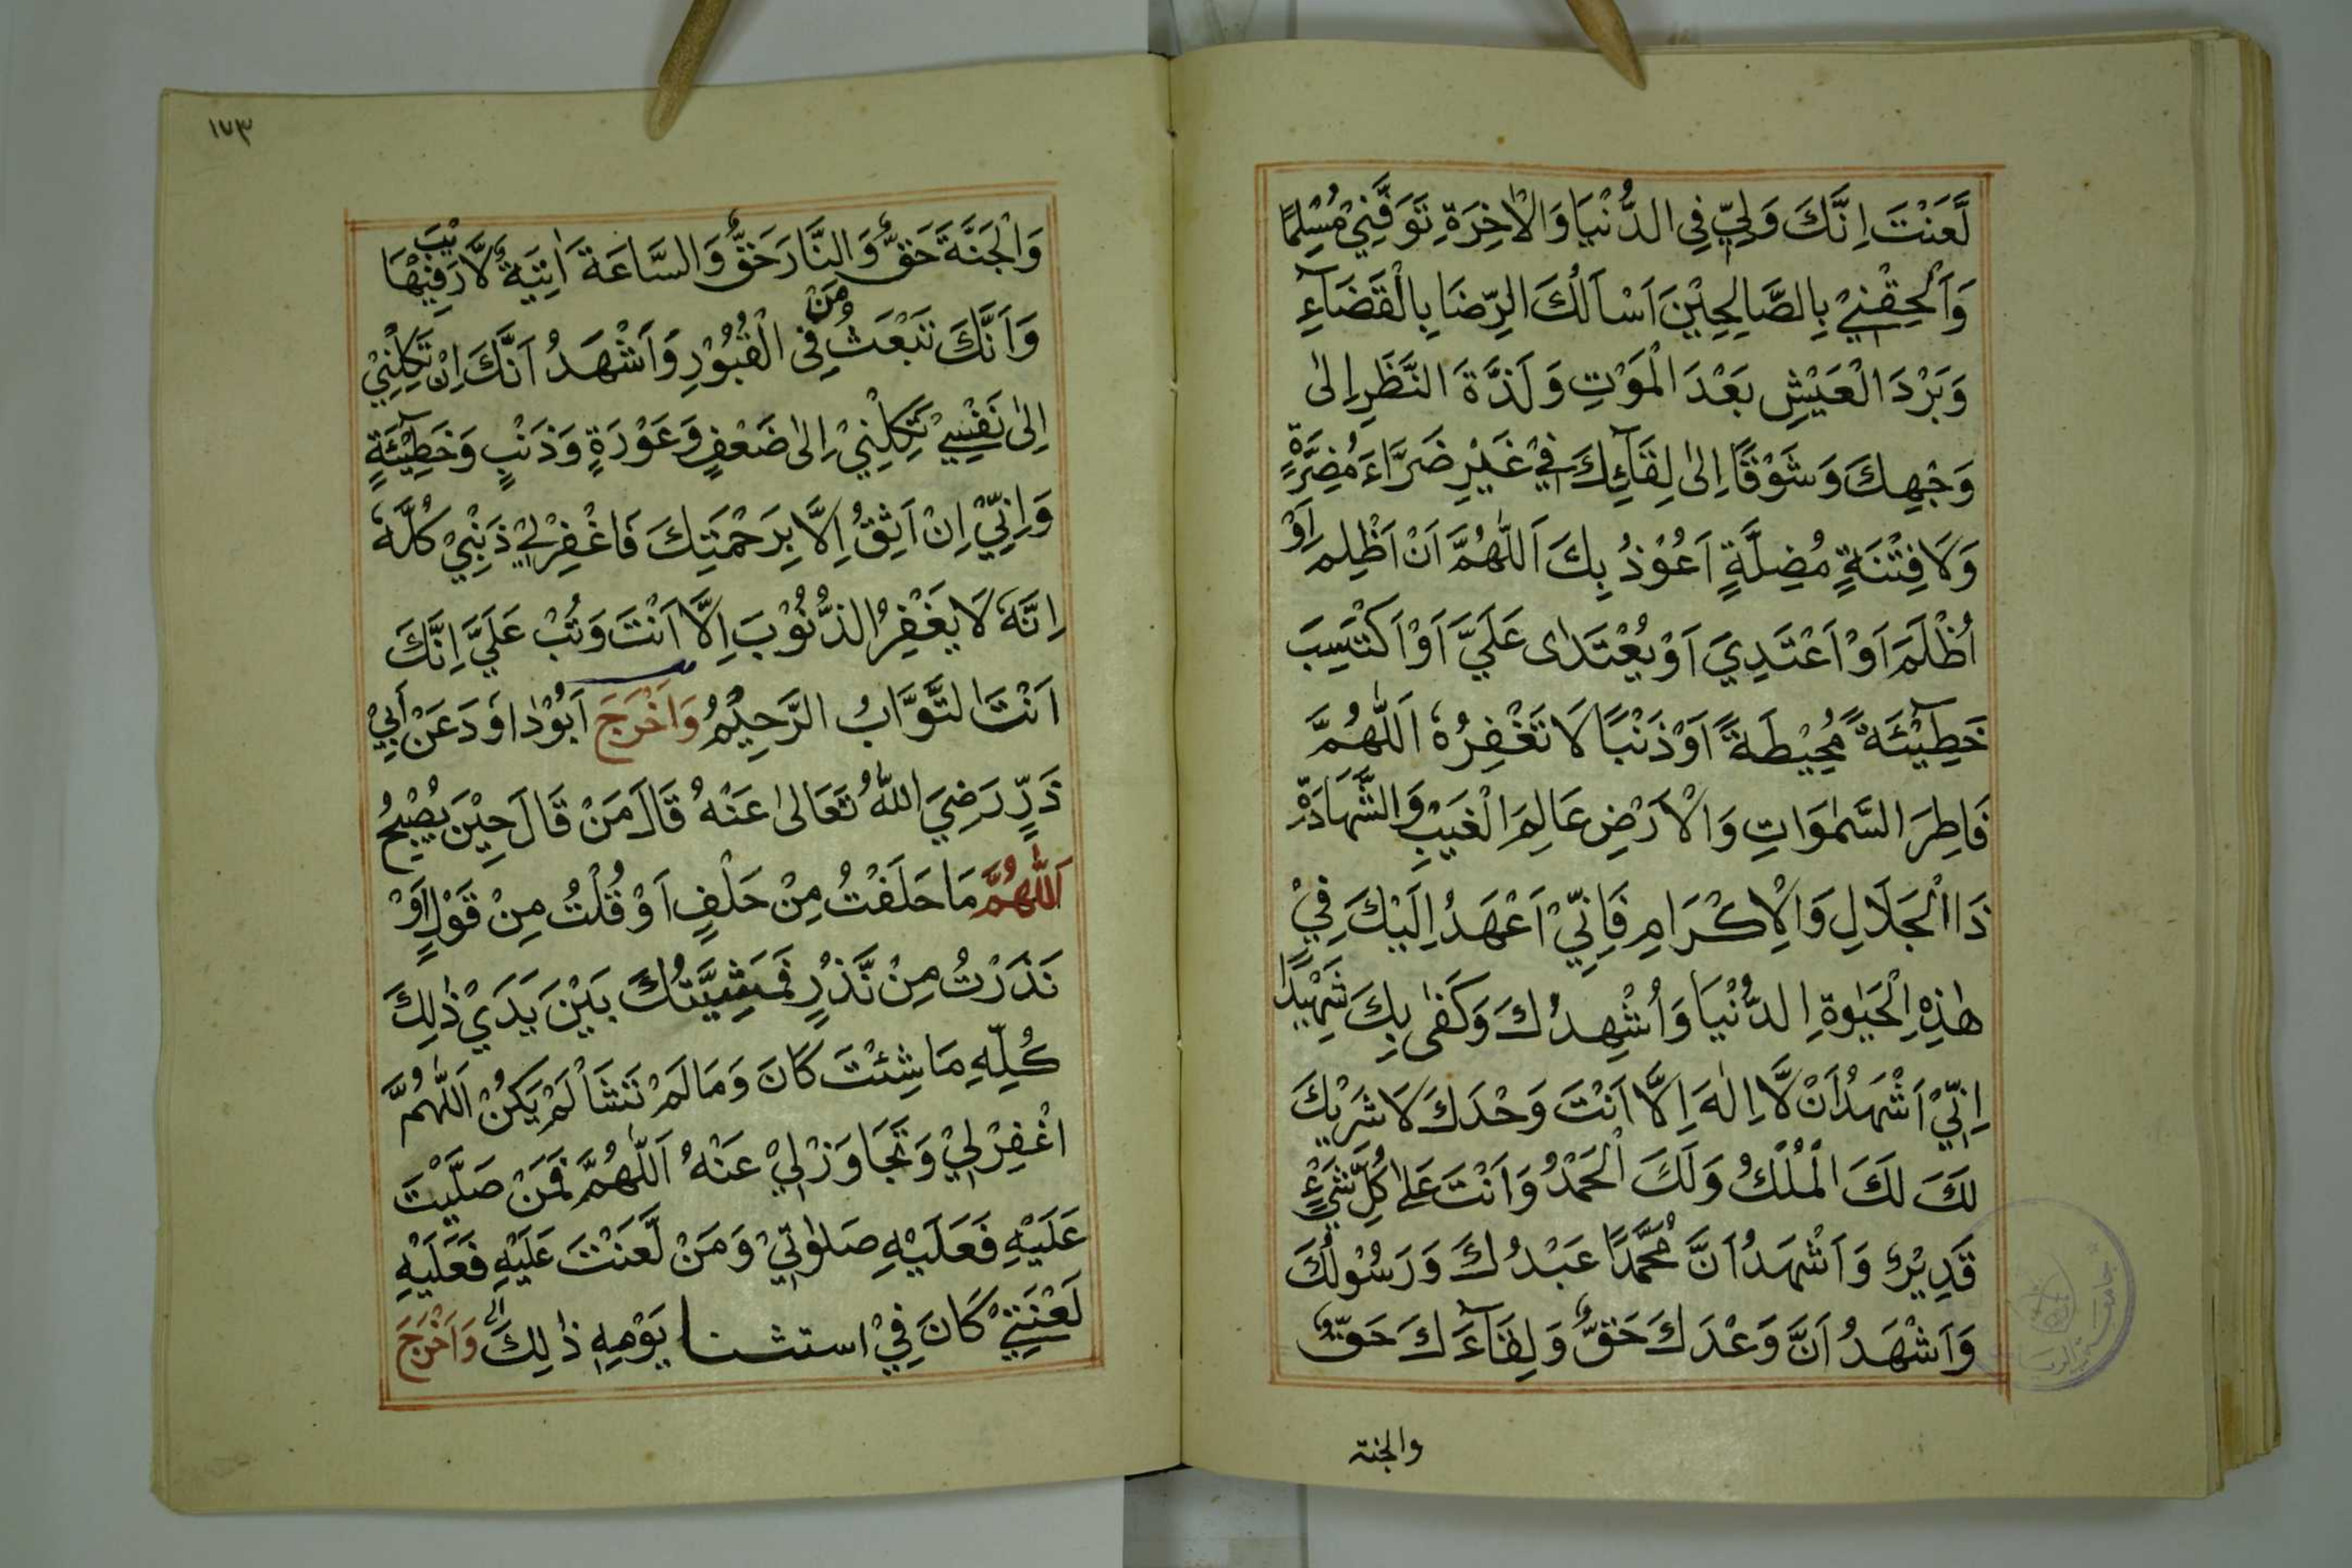 لَّعَنْتَ اِنَّكَ وَلِيِّ فِى الدُّنْيَا وَالْاٰخِرَةِ تَوَفَّنِيْ مُسْلِمًا
وَاَلْحِقْنِيْ بِالصَّالِحِيْنَ اَسْاَلُكَ الرِّضَا بِالْقَضَآءِ
وَبَرْدَ الْعَيْشِ بَعْدَ الْمَوْتِ وَلَذَّةَ النَّظَرِ اِلٰى
وَجْهِكَ وَشَوْقًا اِلٰى لِقَآئِكَ فِيْ غَيْرِ ضَرَّاءَ مُضِرَّةٍ
وَلَا فِتْنَةٍ مُضِلَّةٍ اَعُوْذُ بِكَ اَللّٰهُمَّ اَنْ اَظْلِمَ اَوْ
اُظْلَمَ اَوْ اَعْتَدِيَ اَوْ يُعْتَدٰى عَلَيَّ اَوْ اَكْتَسِبَ
خَطِيْٓئَةً مُحِيْطَةً اَوْ ذَنْبًا لَا تَغْفِرُهٗ اَللّٰهُمَّ
فَاطِرَ السَّمٰوَاتِ وَالْاَرْضِ عَالِمَ الْغَيْبِ وَالشَّهَادَةِ
ذَا الْجَلَالِ وَالْاِكْرَامِ فَاِنِّيْ اَعْهَدُ اِلَيْكَ فِيْ
هٰذِهِ الْحَيٰوةِ الدُّنْيَا وَاُشْهِدُكَ وَكَفٰى بِكَ شَهِيْدًا
اِنِّيْ اَشْهَدُ اَنْ لَّا اِلٰهَ اِلَّا اَنْتَ وَحْدَكَ لَا شَرِيْكَ
لَكَ لَكَ الْمُلْكُ وَلَكَ الْحَمْدُ وَاَنْتَ عَلٰى كُلِّ شَيْءٍ
قَدِيْرٌ وَاَشْهَدُ اَنَّ مُحَمَّدًا عَبْدُكَ وَرَسُوْلُكَ
وَاَشْهَدُ اَنَّ وَعْدَكَ حَقٌّ وَلِقَآءَكَ حَقٌّ
والجنة
١٧٣
وَالْجَنَّةَ حَقٌّ وَالنَّارَ حَقٌّ وَالسَّاعَةَ اٰتِيَةٌ لَّا رَيْبَ فِيْهَا
وَاَنَّكَ تَبْعَثُ مَنْ فِى الْقُبُوْرِ وَاَشْهَدُ اَنَّكَ اِنْ تَكِلْنِيْ
اِلٰى نَفْسِيْ تَكِلْنِيْ اِلٰى ضَعْفٍ وَعَوْرَةٍ وَذَنْبٍ وَخَطِيْٓئَةٍ
وَاِنِّيْ اِنْ اَثِقُ اِلَّا بِرَحْمَتِكَ فَاغْفِرْلِيْ ذَنْبِيْ كُلَّهٗ
اِنَّهٗ لَا يَغْفِرُ الذُّنُوْبَ اِلَّا اَنْتَ وَتُبْ عَلَيَّ اِنَّكَ
اَنْتَ التَّوَّابُ الرَّحِيْمُ وَاَخْرَجَ اَبُوْدَاوَدَ عَنْ اَبِيْ
ذَرٍّ رَضِيَ اللّٰهُ تَعَالٰى عَنْهُ قَالَ مَنْ قَالَ حِيْنَ يُصْبِحُ
اَللّٰهُمَّ مَا حَلَفْتُ مِنْ حَلْفٍ اَوْ قُلْتُ مِنْ قَوْلٍ اَوْ
نَذَرْتُ مِنْ نَّذْرٍ فَمَشِيَّتُكَ بَيْنَ يَدَيْ ذٰلِكَ
كُلِّهِ مَا شِئْتَ كَانَ وَمَا لَمْ تَشَاْ لَمْ يَكُنْ اَللّٰهُمَّ
اغْفِرْلِيْ وَتَجَاوَزْ لِيْ عَنْهُ اَللّٰهُمَّ فَمَنْ صَلَّيْتَ
عَلَيْهِ فَعَلَيْهِ صَلٰوتِيْ وَمَنْ لَّعَنْتَ عَلَيْهِ فَعَلَيْهِ
لَعْنَتِيْ كَانَ فِيْ استثنا يَوْمِهِ ذٰلِكَ وَاَخْرَجَ